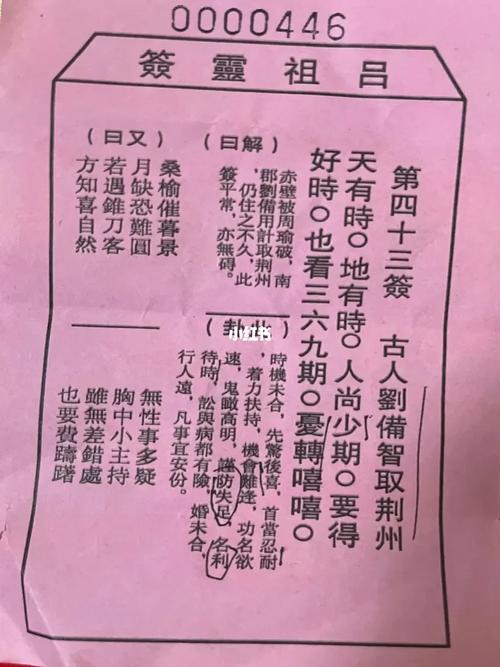 0000446
吕祖靈簽
第四十三簽 古人劉備智取荆州
天有時○地有時○人尚少期○要得
好時○也看三六九期○憂轉嘻嘻○
(解曰)
赤壁被周瑜破，南
郡劉備用計取荆州
，仍住之不久，此
簽平常，亦無碍。
卦)
小红书
時機未合，先驚後喜，首當忍耐
，着力扶持，機會難逢，功名欲
速，鬼瞰高明，謹防失足，名利
待時，訟與病都有險，婚未合，
行人遠，凡事宜安份。
(又曰)
桑榆催暮景
月缺恐難圓
若遇錐刀客
方知喜自然
無性事多疑
胸中小主持
雖無差錯處
也要費躊躇